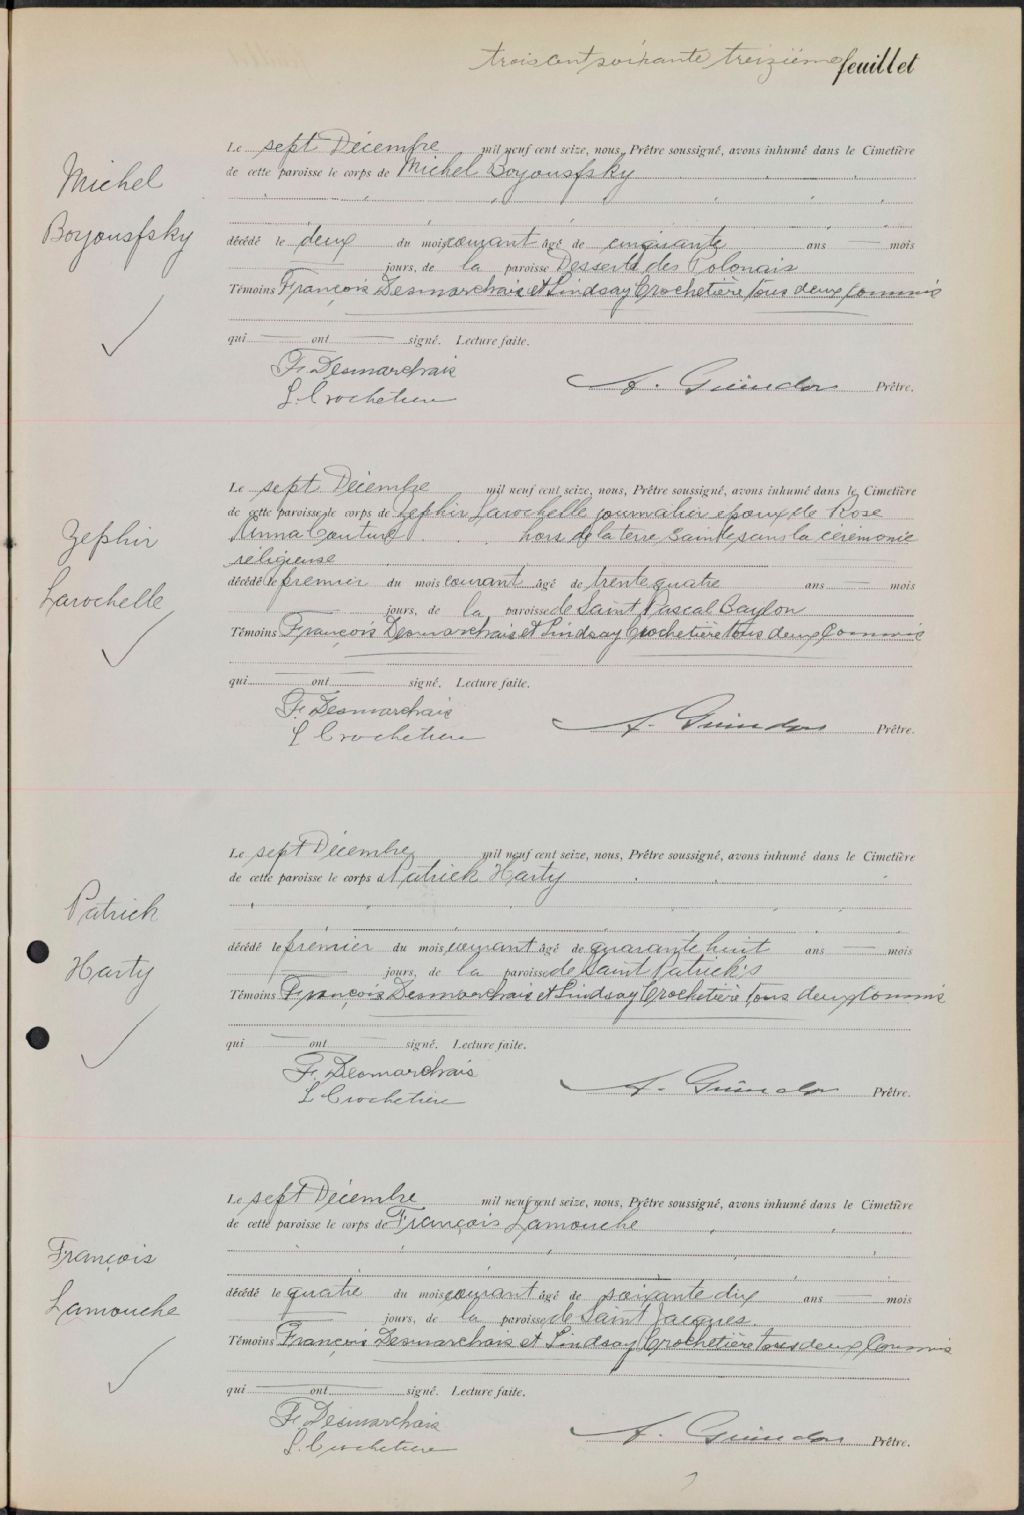 trois cent soixante treizième feuillet
Michel
Boyousfsky
Le sept Décembre mil neuf cent seize, nous, Prêtre soussigné, avons inhumé dans le Cimetière
de cette paroisse le corps de Michel Boyousfsky
décédé le deux du mois courant âgé de cinquante ans — mois
— jours, de la paroisse Desserte des Polonais
Témoins François Desmarchais et Lindsay Crochetière tous deux Commis
qui — ont — signé. Lecture faite.
F. Desmarchais
L. Crochetiere
A. Guindon Prêtre.
Zephir
Larochelle
Le sept Décembre mil neuf cent seize, nous, Prêtre soussigné, avons inhumé dans le Cimetière
de cette paroisse le corps de Zephir Larochelle journalier epoux de Rose
Anna Couture hors de la terre Sainte, sans la cérémonie
réligieuse
décédé le premier du mois courant âgé de trente quatre ans — mois
jours, de la paroisse de Saint Pascal Baylon
Témoins François Desmarchais et Lindsay Crochetière tous deux Commis
qui — ont — signé. Lecture faite.
F. Desmarchais
L Crochetiere
A. Guindon Prêtre.
Patrick
Harty
Le sept Décembre mil neuf cent seize, nous, Prêtre soussigné, avons inhumé dans le Cimetière
de cette paroisse le corps d Patrick Harty
décédé le premier du mois courant âgé de quarante huit ans — mois
— jours, de la paroisse de Saint Patrick's
Témoins François Desmarchais et Lindsay Crochetière tous deux Commis
qui — ont — signé. Lecture faite.
F. Desmarchais
L Crochetiere
A. Guindon Prêtre.
François
Lamouche
Le sept Décembre mil neuf cent seize, nous, Prêtre soussigné, avons inhumé dans le Cimetière
de cette paroisse le corps de François Lamouche
décédé le quatre du mois courant âgé de soixante dix ans — mois
— jours, de la paroisse de Saint Jacques.
Témoins François Desmarchais et Lindsay Crochetière tous deux Commis
qui — ont — signé. Lecture faite.
F. Desmarchais
L. Crochetiere
A. Guindon Prêtre.